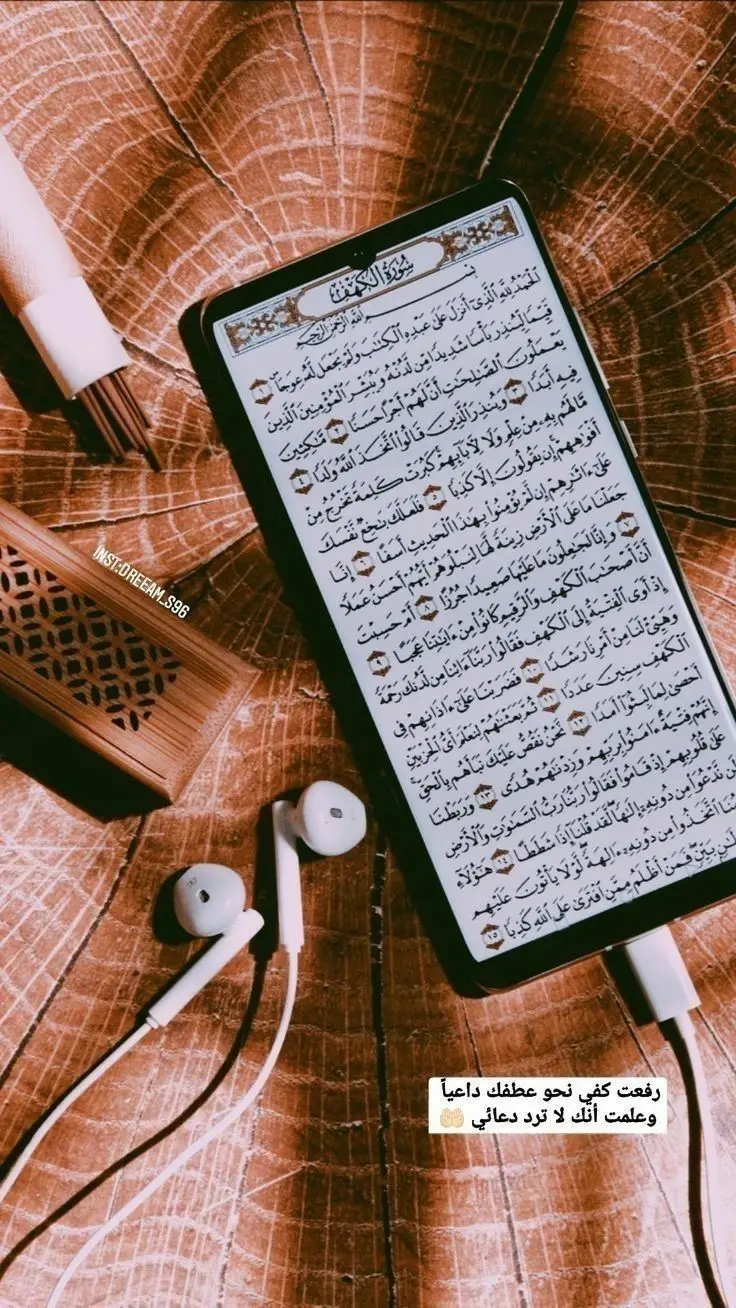 سُورَةُ الكَهْفِ
بِسْمِ اللَّهِ الرَّحْمَٰنِ الرَّحِيمِ
الْحَمْدُ لِلَّهِ الَّذِي أَنزَلَ عَلَىٰ عَبْدِهِ الْكِتَابَ وَلَمْ يَجْعَل لَّهُ عِوَجًا ١
قَيِّمًا لِّيُنذِرَ بَأْسًا شَدِيدًا مِّن لَّدُنْهُ وَيُبَشِّرَ الْمُؤْمِنِينَ الَّذِينَ
يَعْمَلُونَ الصَّالِحَاتِ أَنَّ لَهُمْ أَجْرًا حَسَنًا ٢ مَّاكِثِينَ
فِيهِ أَبَدًا ٣ وَيُنذِرَ الَّذِينَ قَالُوا اتَّخَذَ اللَّهُ وَلَدًا ٤
مَّا لَهُم بِهِ مِنْ عِلْمٍ وَلَا لِآبَائِهِمْ كَبُرَتْ كَلِمَةً تَخْرُجُ مِنْ
أَفْوَاهِهِمْ إِن يَقُولُونَ إِلَّا كَذِبًا ٥ فَلَعَلَّكَ بَاخِعٌ نَّفْسَكَ
عَلَىٰ آثَارِهِمْ إِن لَّمْ يُؤْمِنُوا بِهَٰذَا الْحَدِيثِ أَسَفًا ٦ إِنَّا
جَعَلْنَا مَا عَلَى الْأَرْضِ زِينَةً لَّهَا لِنَبْلُوَهُمْ أَيُّهُمْ أَحْسَنُ عَمَلًا
٧ وَإِنَّا لَجَاعِلُونَ مَا عَلَيْهَا صَعِيدًا جُرُزًا ٨ أَمْ حَسِبْتَ
أَنَّ أَصْحَابَ الْكَهْفِ وَالرَّقِيمِ كَانُوا مِنْ آيَاتِنَا عَجَبًا ٩
إِذْ أَوَى الْفِتْيَةُ إِلَى الْكَهْفِ فَقَالُوا رَبَّنَا آتِنَا مِن لَّدُنكَ رَحْمَةً
وَهَيِّئْ لَنَا مِنْ أَمْرِنَا رَشَدًا ١٠ فَضَرَبْنَا عَلَىٰ آذَانِهِمْ فِي
الْكَهْفِ سِنِينَ عَدَدًا ١١ ثُمَّ بَعَثْنَاهُمْ لِنَعْلَمَ أَيُّ الْحِزْبَيْنِ
أَحْصَىٰ لِمَا لَبِثُوا أَمَدًا ١٢ نَّحْنُ نَقُصُّ عَلَيْكَ نَبَأَهُم بِالْحَقِّ
إِنَّهُمْ فِتْيَةٌ آمَنُوا بِرَبِّهِمْ وَزِدْنَاهُمْ هُدًى ١٣ وَرَبَطْنَا
عَلَىٰ قُلُوبِهِمْ إِذْ قَامُوا فَقَالُوا رَبُّنَا رَبُّ السَّمَاوَاتِ وَالْأَرْضِ
لَن نَّدْعُوَ مِن دُونِهِ إِلَٰهًا لَّقَدْ قُلْنَا إِذًا شَطَطًا ١٤ هَٰؤُلَاءِ
قَوْمُنَا اتَّخَذُوا مِن دُونِهِ آلِهَةً لَّوْلَا يَأْتُونَ عَلَيْهِم
بِسُلْطَانٍ بَيِّنٍ فَمَنْ أَظْلَمُ مِمَّنِ افْتَرَىٰ عَلَى اللَّهِ كَذِبًا ١٥
INST:DREEAM_S96
رفعت كفي نحو عطفك داعياً
وعلمت أنك لا ترد دعائي 🤲🏻